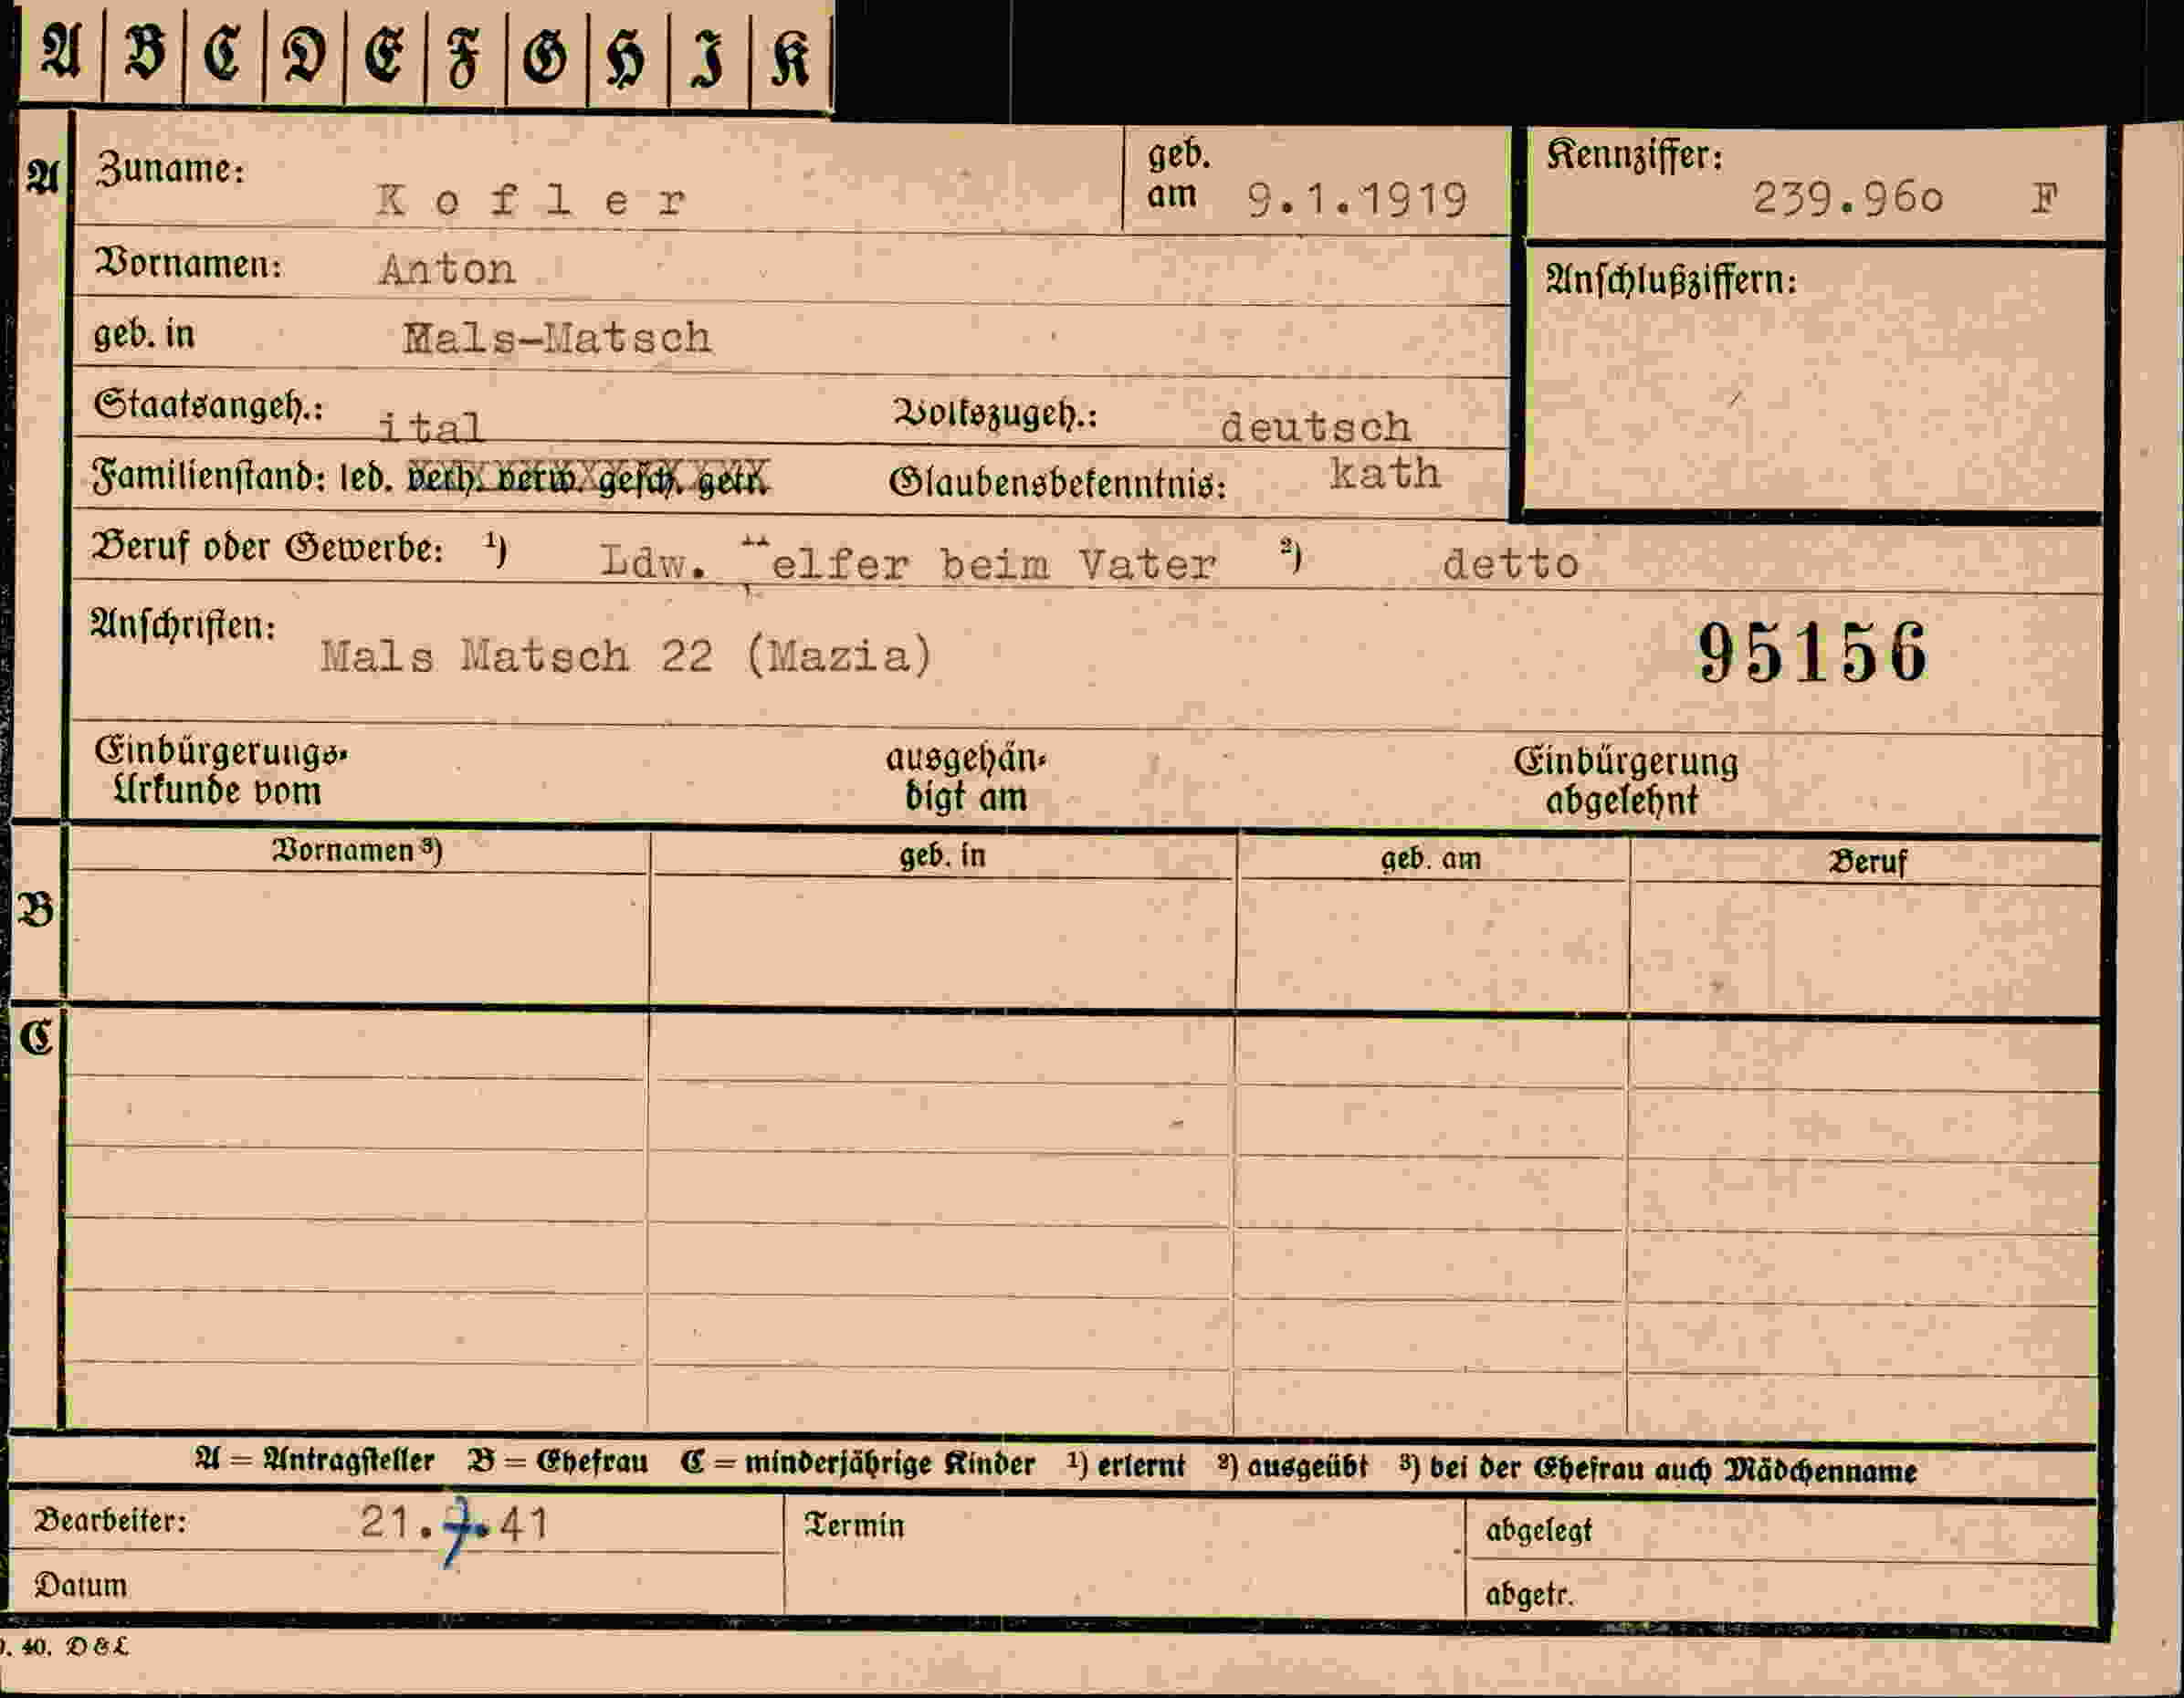 A B C D E F G H I K
A Zuname: Kofler geb. am 9.1.1919 Kennziffer: 239.960 F
Vornamen: Anton Anschlußziffern:
geb. in Mals-Matsch
Staatsangeh.: ital Volkszugeh.: deutsch
Familienstand: led. verh. verw. gesch. getr. Glaubensbekenntnis: kath
Beruf oder Gewerbe: ¹) Ldw. Helfer beim Vater ²) detto
Anschriften: Mals Matsch 22 (Mazia) 95156
Einbürgerungs-Urkunde vom ausgehän-digt am Einbürgerung abgelehnt
Vornamen ³) geb. in geb. am Beruf
B
C
A = Antragsteller B = Ehefrau C = minderjährige Kinder ¹) erlernt ²) ausgeübt ³) bei der Ehefrau auch Mädchenname
Bearbeiter: 21.7.41 Termin abgelegt
Datum abgetr.
40. D & L